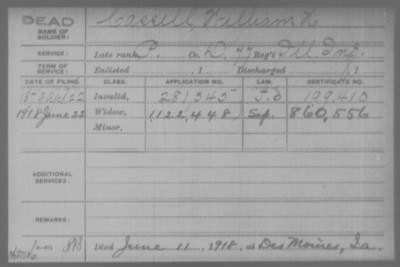 DEAD Cassell, William H
NAME OF SOLDIER:
SERVICE: Late rank P. Co. D, 47 Reg't Ill Inf.
TERM OF SERVICE: Enlisted , 1 Discharged , 1
DATE OF FILING. CLASS. APPLICATION NO. LAW. CERTIFICATE NO.
22 Invalid, 281,345 199,410
1918 June 22 Widow, 1,122,448, Sep. 860,556
Minor,
ADDITIONAL SERVICES:
REMARKS:
Died June 11, 1918, at Des Moines, Ia.